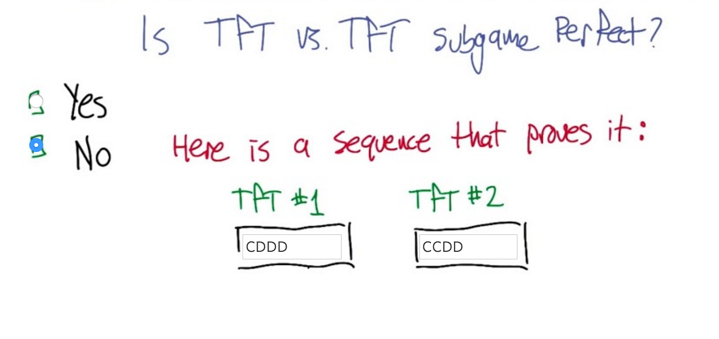 Is TFT vs. TFT subgame perfect?
Yes
No
Here is a sequence that proves it:
TFT #1 TFT #2
CDDD CCDD